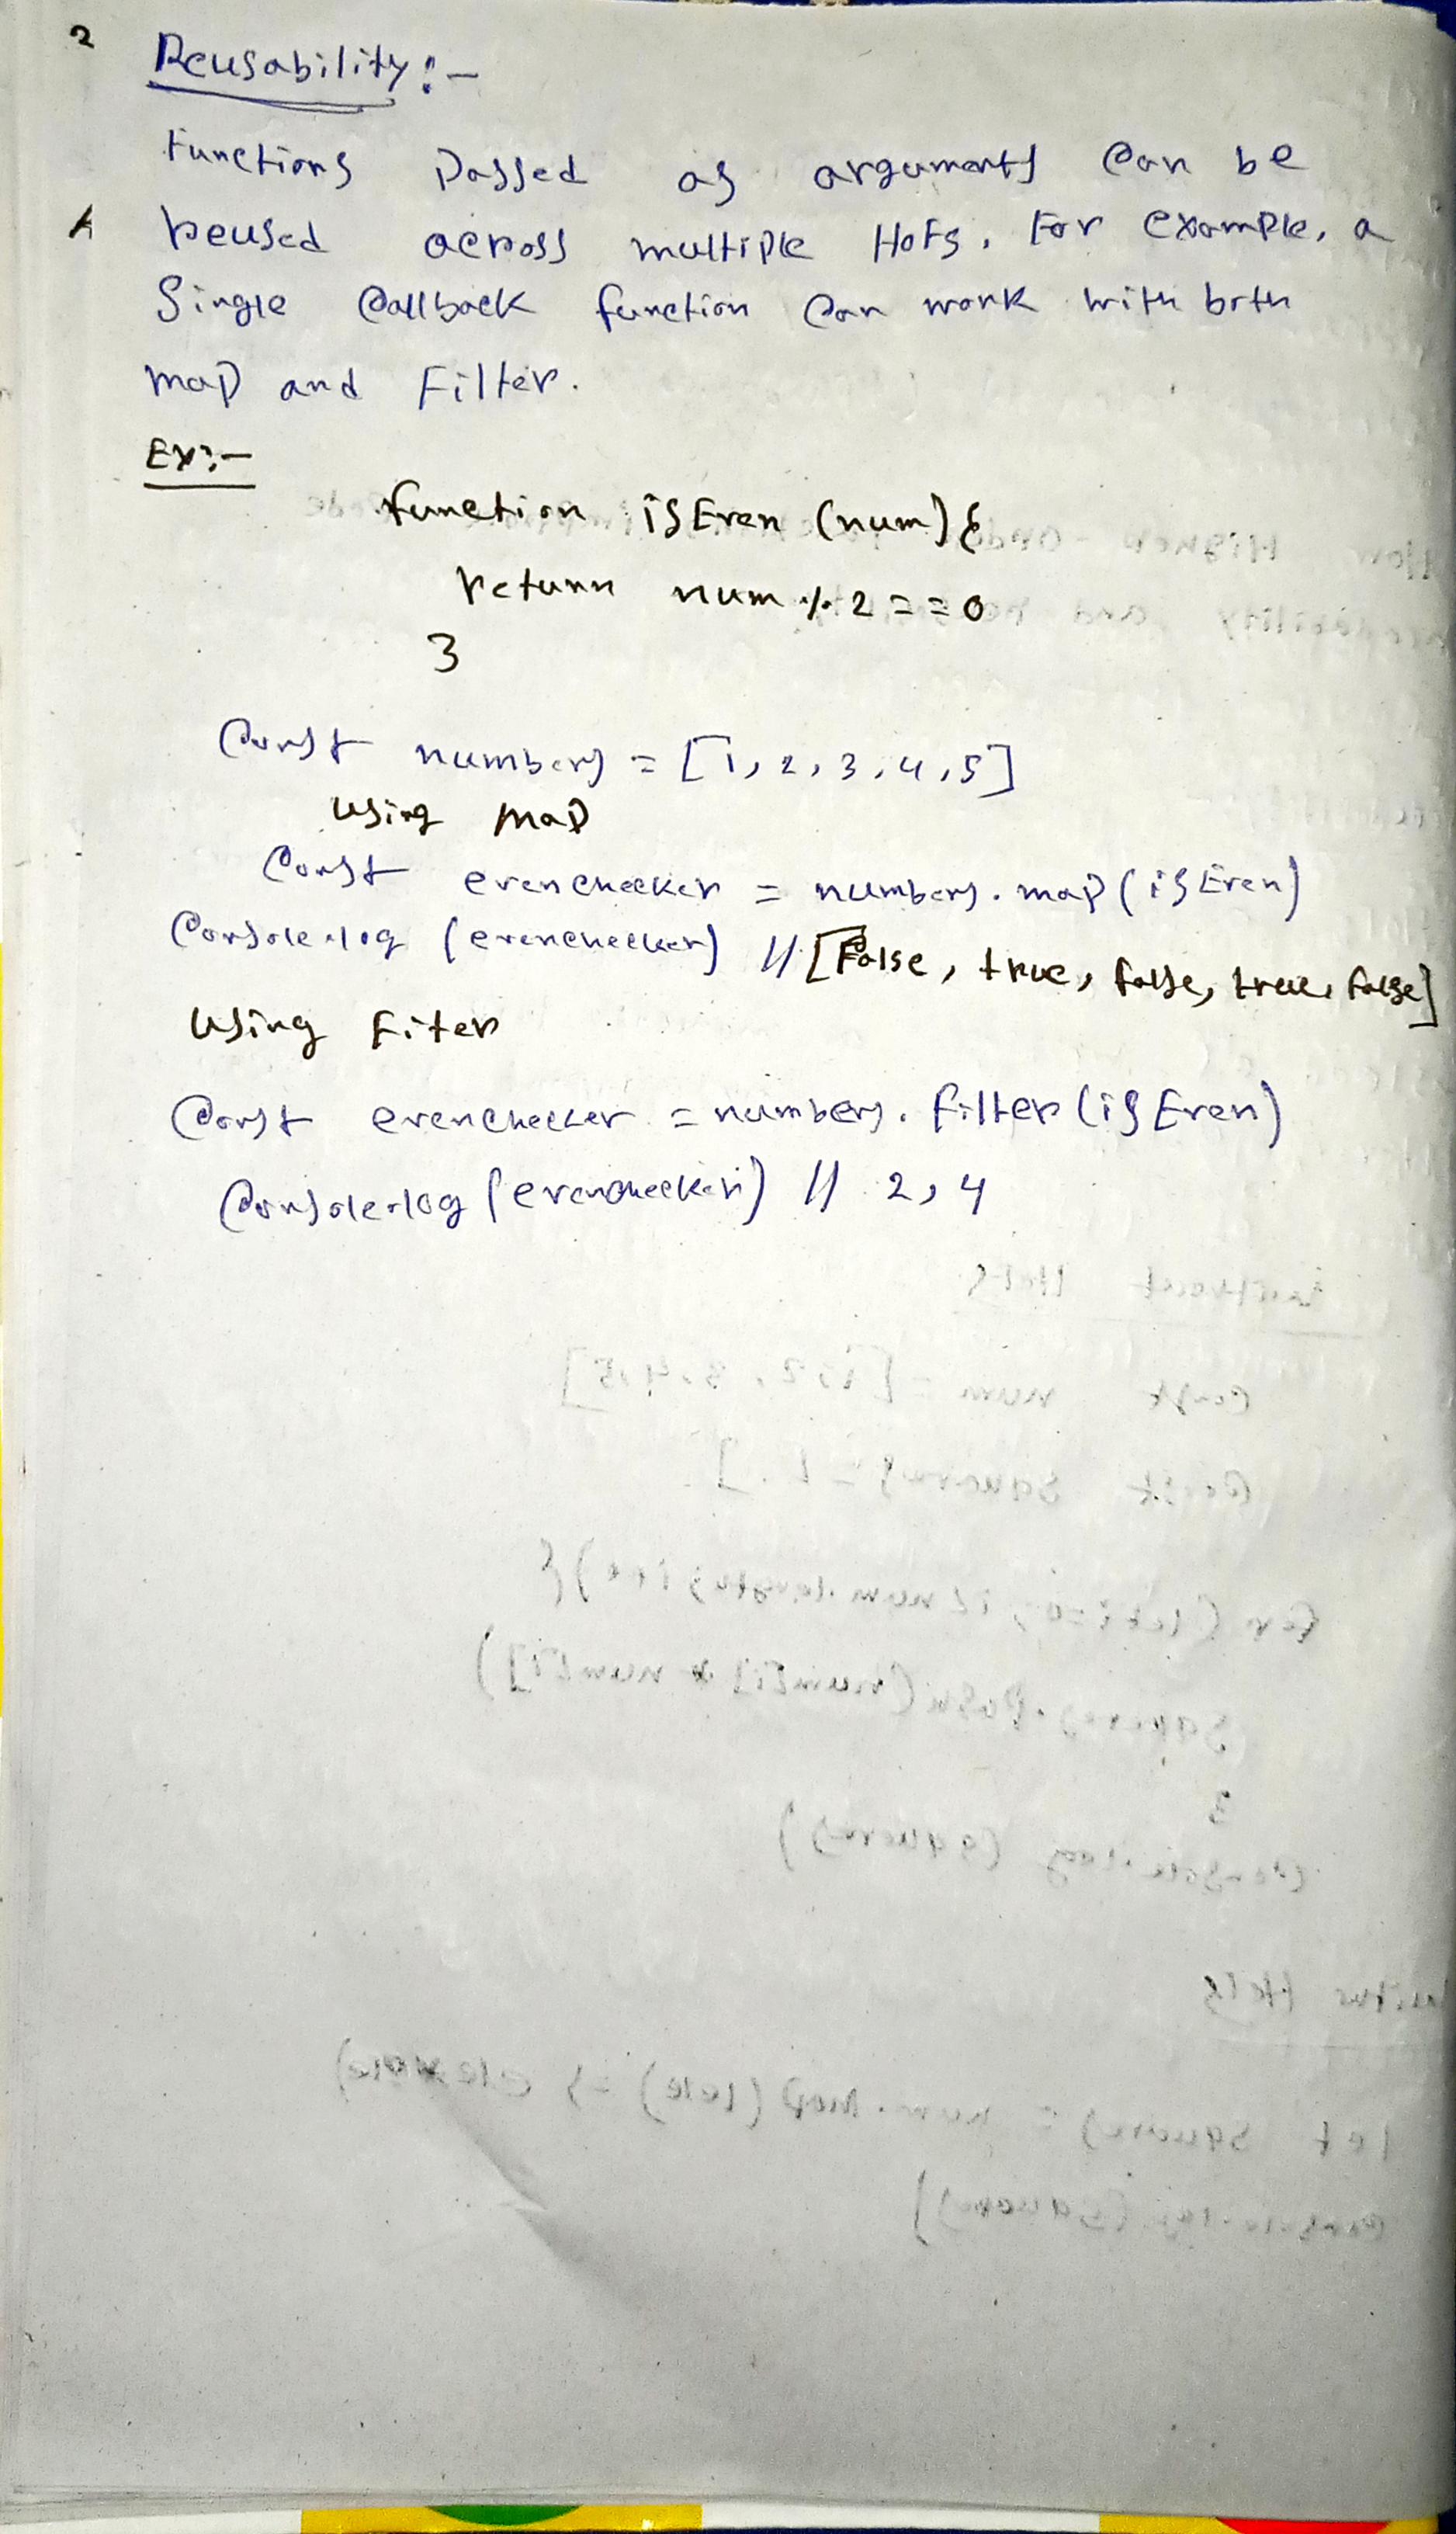 2 Reusability :-
Functions Passed as arguments Can be
reused across multiple HoFs. For example, a
Single Callback function Can work with both
map and Filter.
Ex:-
function isEven (num) {
return num % 2 == 0
}
Const numbers = [1, 2, 3, 4, 5]
using map
Const evenchecker = numbers.map(isEven)
Console.log (evenchecker) // [False, true, false, true, false]
Using Fiter
Const evenchecker = numbers.filter(isEven)
Console.log (evenchecker) // 2, 4